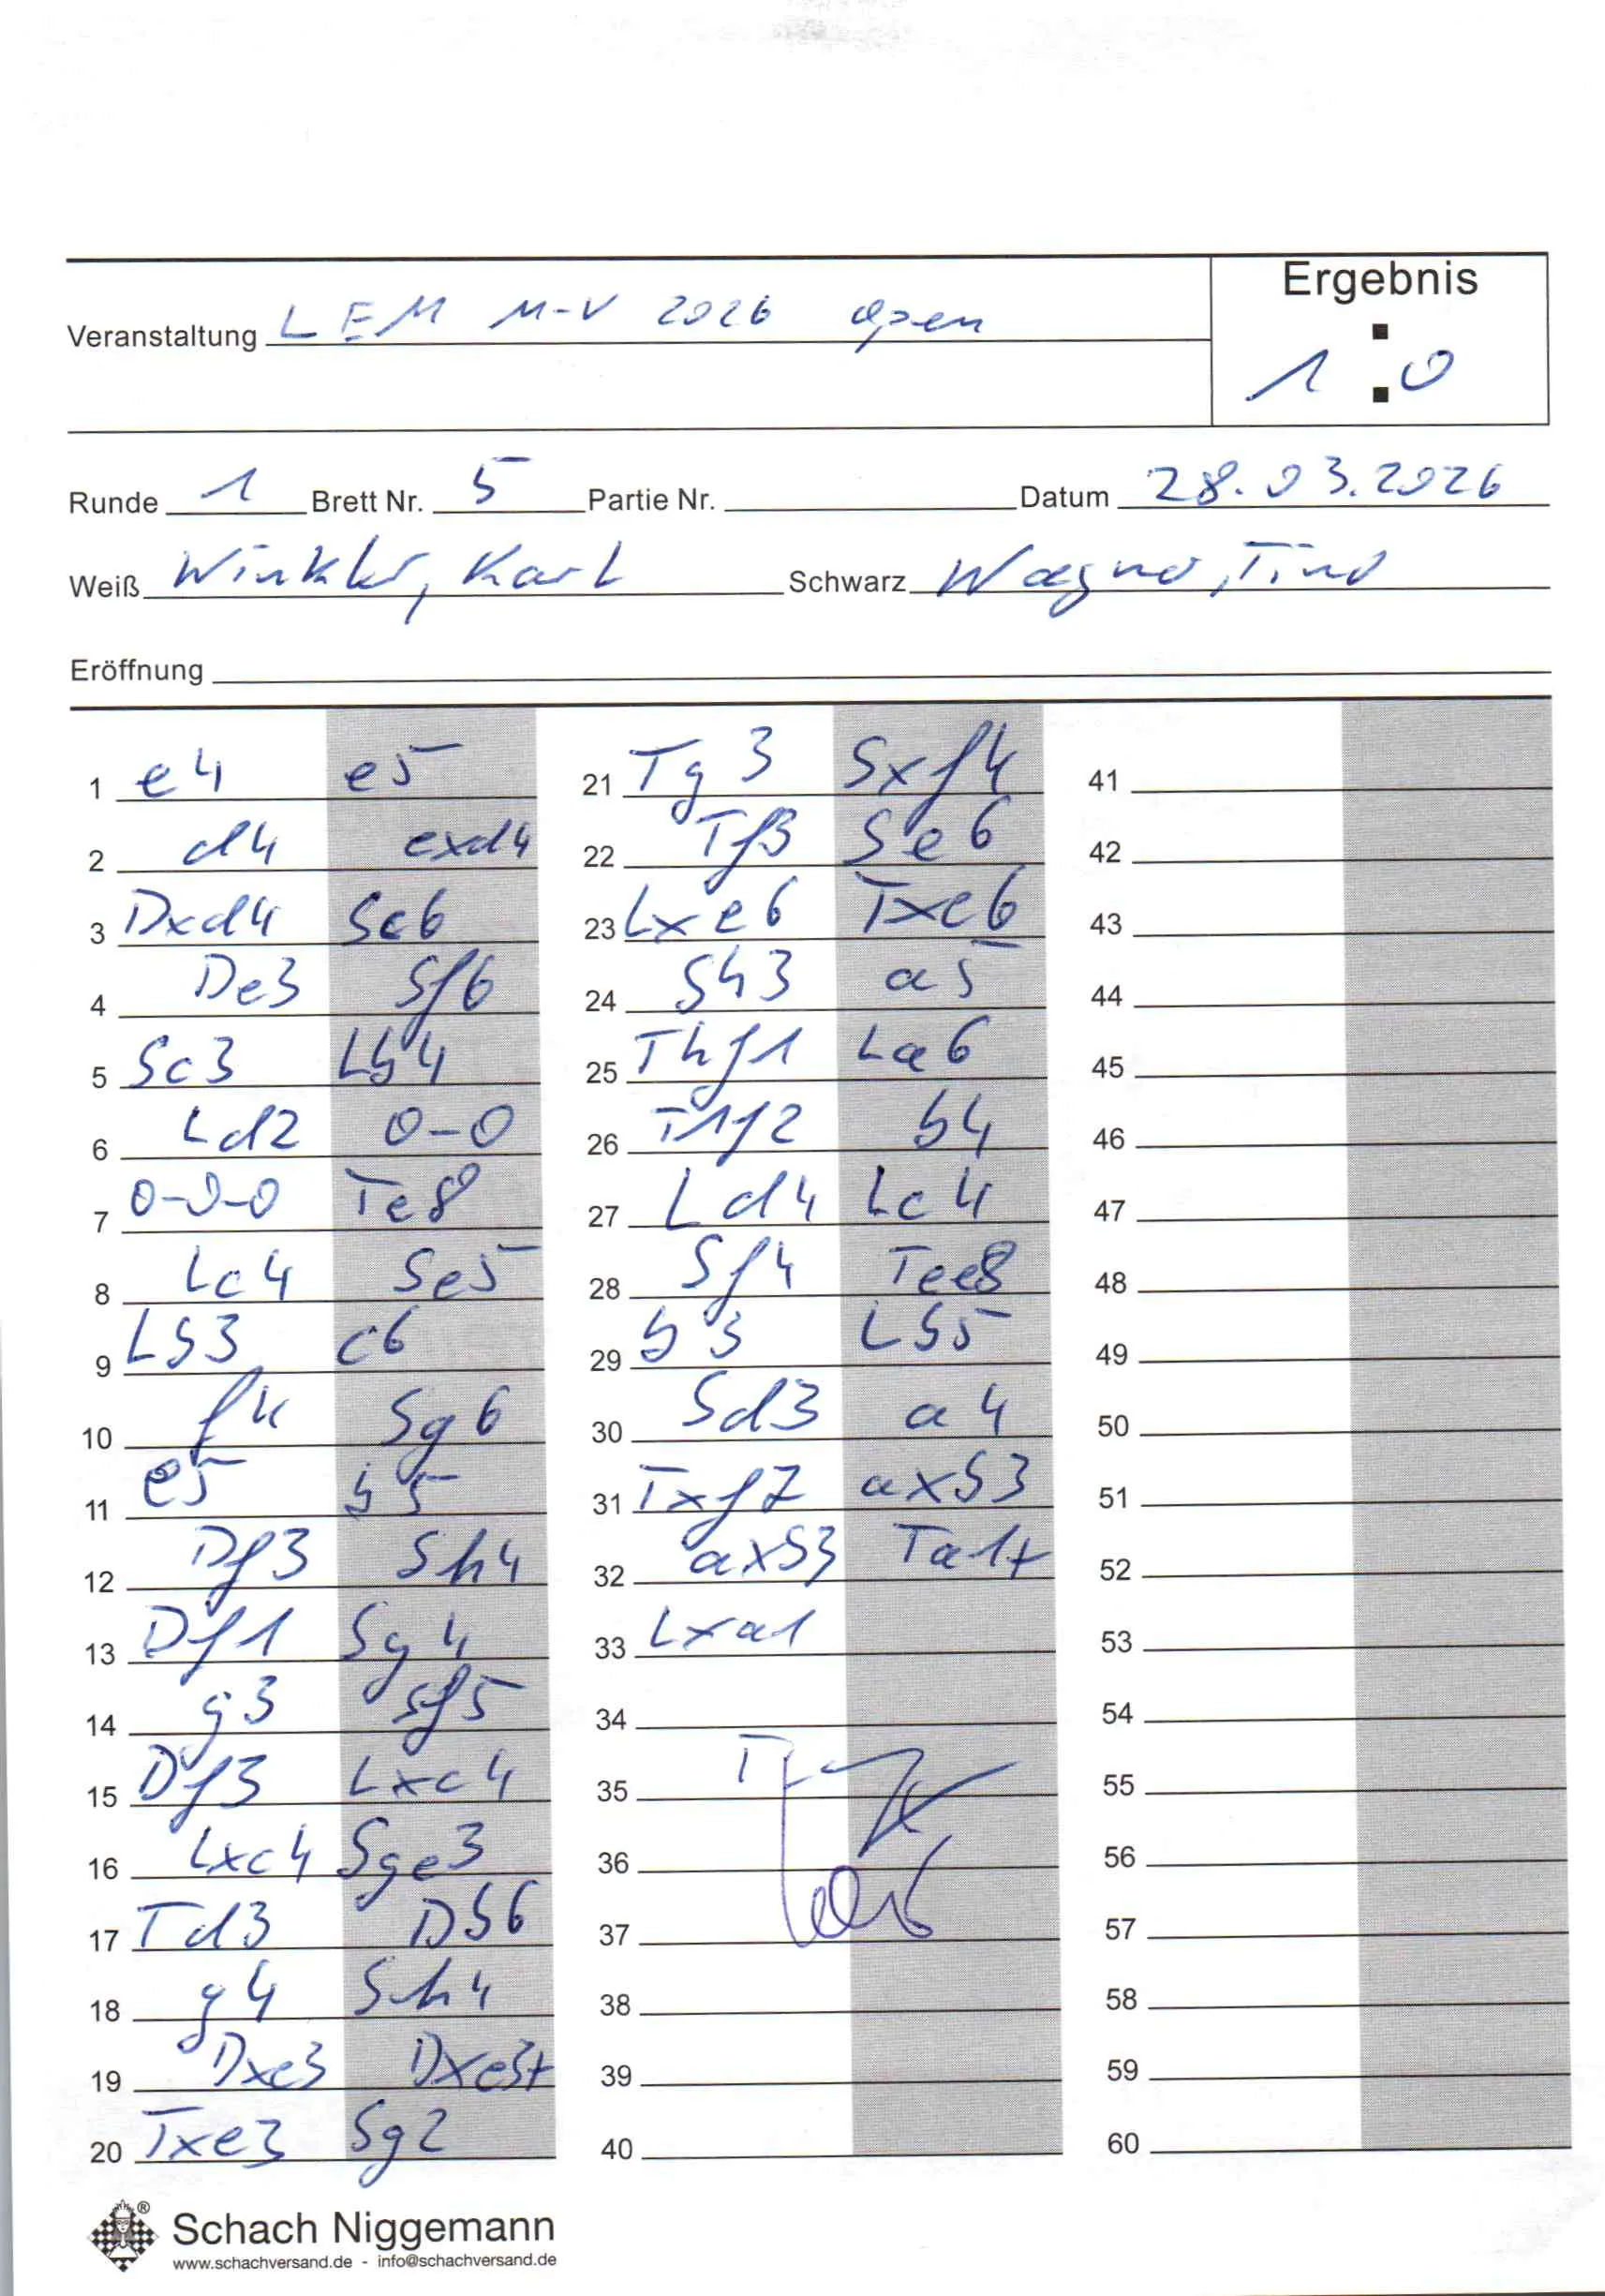 Ergebnis
Veranstaltung LEM M-V 2026 open
1 : 0
Runde 1 Brett Nr. 5 Partie Nr. Datum 28.03.2026
Weiß Winkler, Karl Schwarz Wagner, Tino
Eröffnung
1 e4 e5
2 d4 exd4
3 Dxd4 Sc6
4 De3 Sf6
5 Sc3 Lb4
6 Ld2 0-0
7 0-0-0 Te8
8 Lc4 Se5
9 Lb3 c6
10 f4 Sg6
11 e5 b5
12 Df3 Sh4
13 Df1 Sg4
14 g3 Sf5
15 Df3 Lxc4
16 Lxc4 Sge3
17 Td3 Db6
18 g4 Sh4
19 Dxe3 Dxe3+
20 Txe3 Sg2
21 Tg3 Sxf4
22 Tf3 Se6
23 Lxe6 Txe6
24 Sh3 a5
25 Thf1 La6
26 T1f2 b4
27 Ld4 Lc4
28 Sf4 Tee8
29 b3 Lb5
30 Sd3 a4
31 Txf7 axb3
32 axb3 Ta1+
33 Lxa1
34
35
36
37
38
39
40
41
42
43
44
45
46
47
48
49
50
51
52
53
54
55
56
57
58
59
60
Schach Niggemann
www.schachversand.de - info@schachversand.de